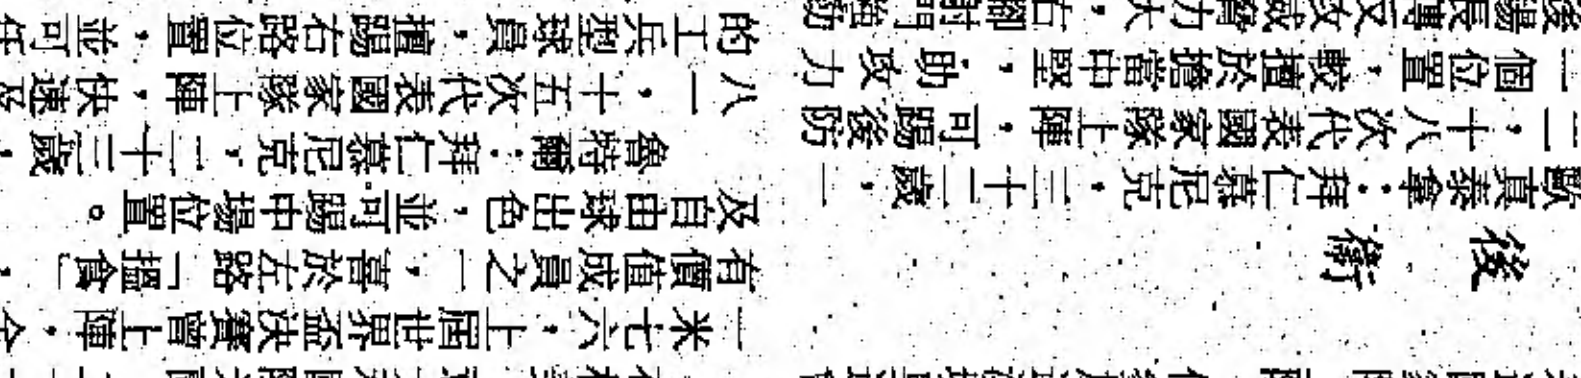 後衛
歐真泰拿：拜仁慕尼克，三十二歲，一
二，十八次代表國家隊上陣，可踢後防
一個位置，較擅於擔當中堅，助攻力
後場長傳反攻威脅力大，右腳射門
一米七六，上屆世界盃決賽曾上陣，今
有價值成員之一，喜於左路「搵食」，
及自由球出色，並可踢中場位置。
魯特爾：拜仁慕尼克，二十三歲，
八一，十五次代表國家隊上陣，快速及
的工兵型球員，擅踢右路位置，並可任